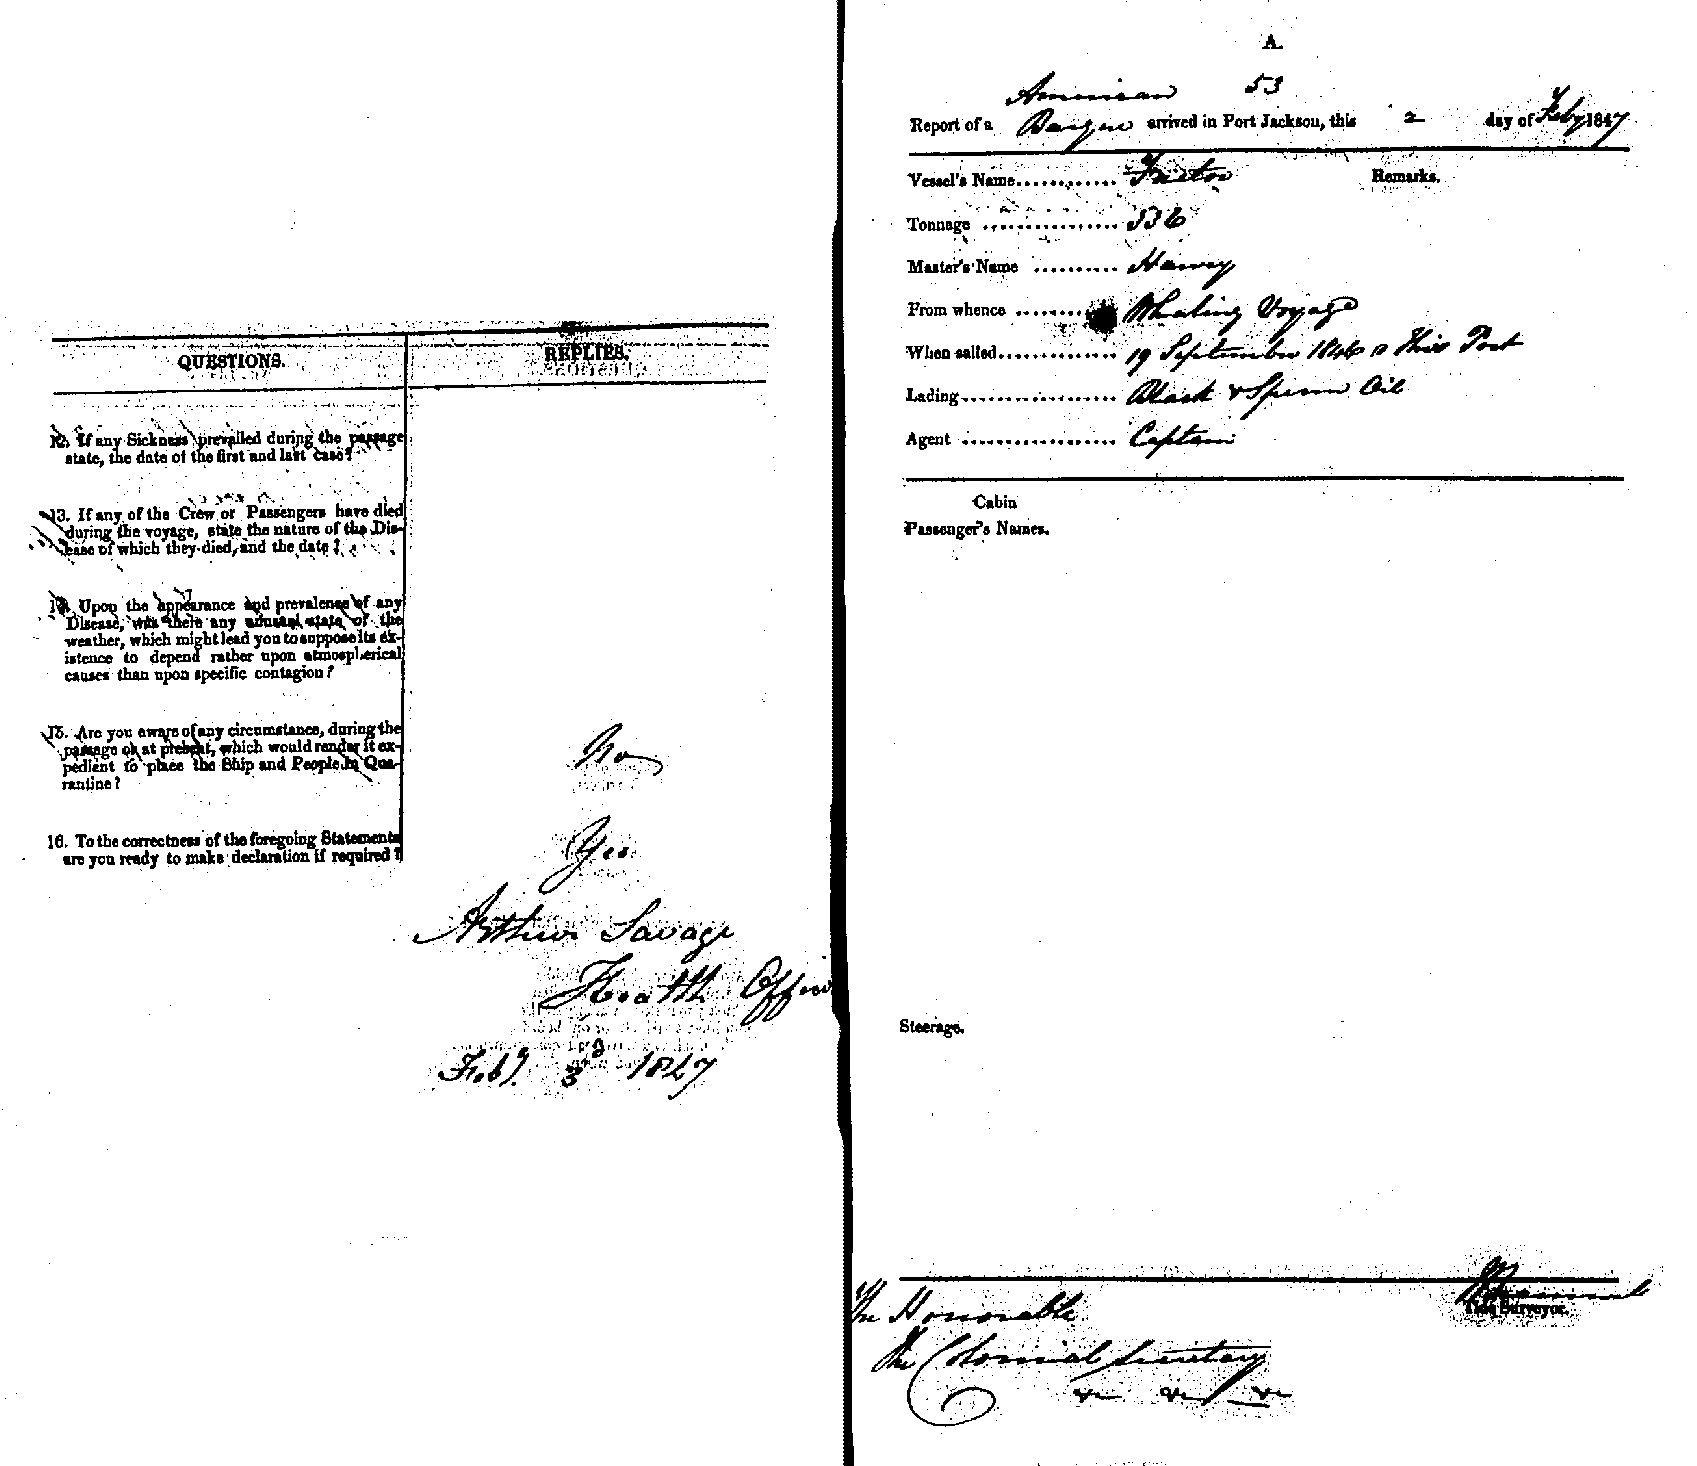 QUESTIONS.
REPLIES.
12. If any Sickness prevailed during the passage
state, the date of the first and last case?
13. If any of the Crew or Passengers have died
during the voyage, state the nature of the Dis-
ease of which they died, and the date?
14. Upon the appearance and prevalence of any
Disease, was there any unusual state of the
weather, which might lead you to suppose its ex-
istence to depend rather upon atmospherical
causes than upon specific contagion?
15. Are you aware of any circumstance, during the
passage or at present, which would render it ex-
pedient to place the Ship and People in Qua-
rantine?
No
16. To the correctness of the foregoing Statements
are you ready to make declaration if required?
Yes
Arthur Savage
Health Officer
Feby. 3d 1847
A.
American 53
Report of a Barque arrived in Port Jackson, this 2 day of Feby 1847
Vessel's Name
Remarks.
Tonnage 336
Master's Name
From whence Whaling Voyage
When sailed 19 September 1846 This Port
Lading Black & Sperm Oil
Agent Captain
Cabin
Passenger's Names.
Steerage.
Tide Surveyor.
The Honorable
The Colonial Secretary